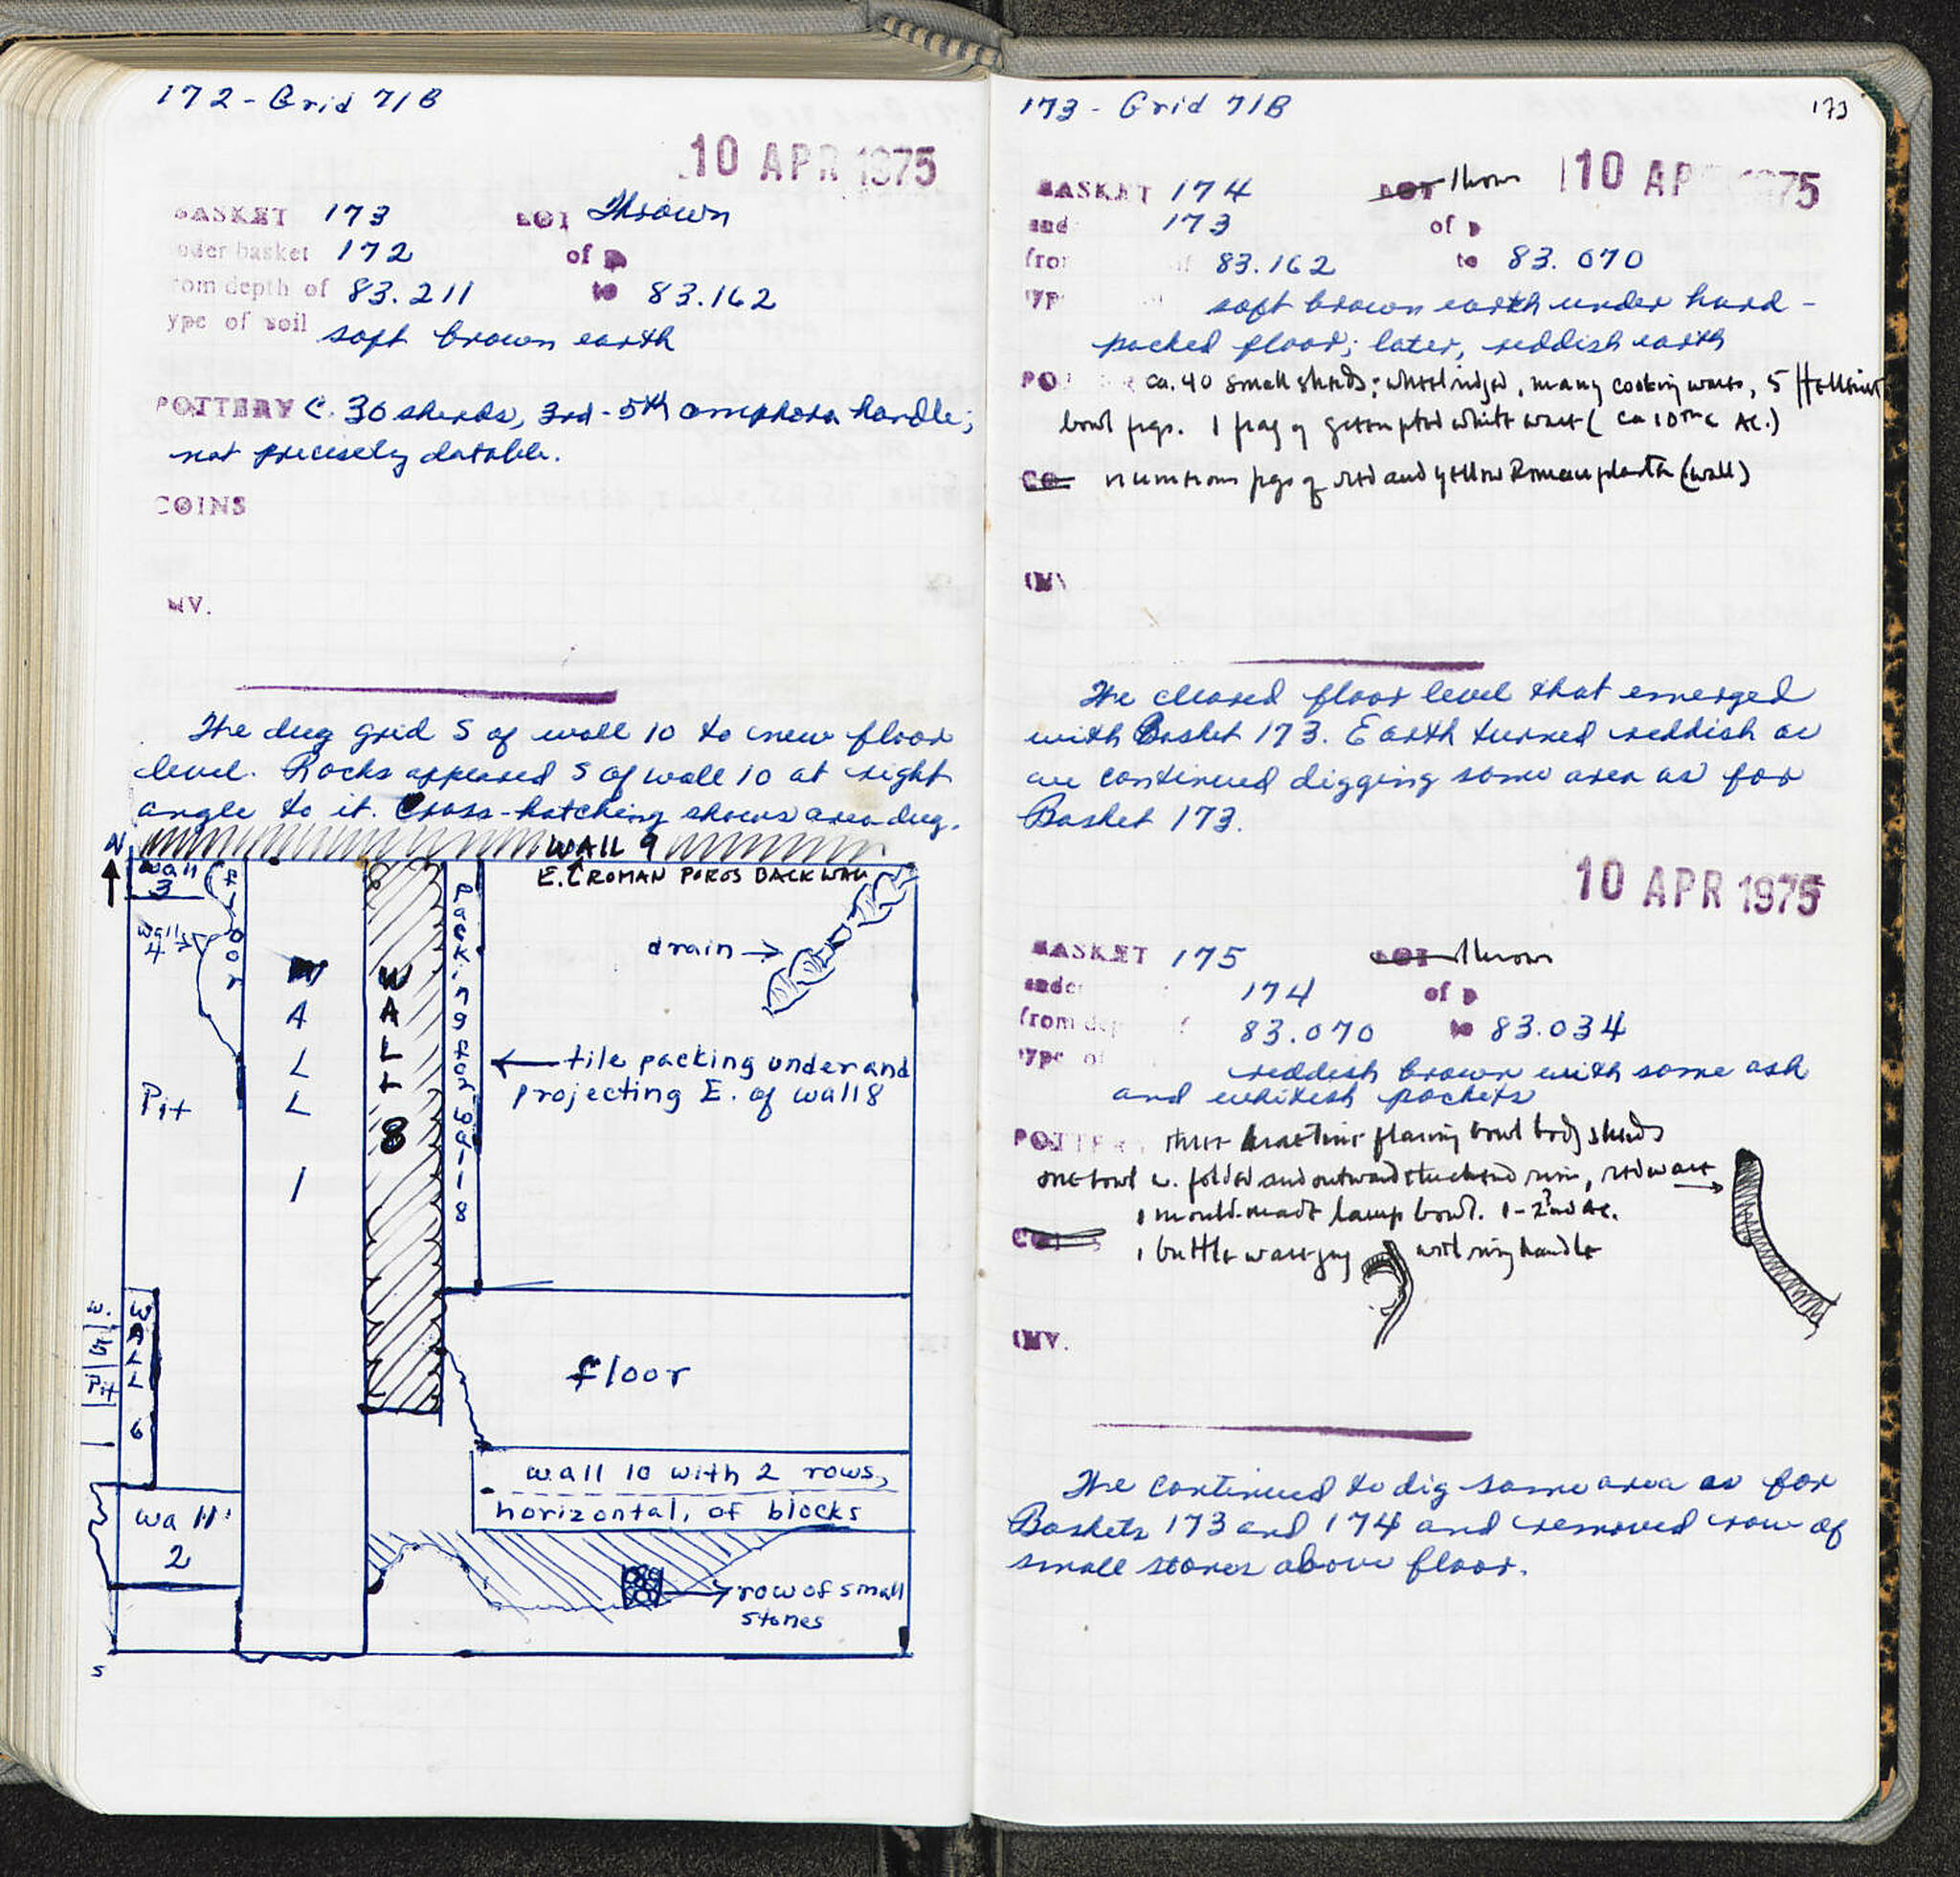 172 - Grid 71B
10 APR 1975
BASKET 173 LOT Thrown
under basket 172 of P
from depth of 83.211 to 83.162
type of soil soft brown earth
POTTERY C. 30 sherds, 3rd-5th amphora handle;
not precisely datable.
COINS
INV.
We dug grid S of wall 10 to new floor
level. Rocks appeared S of wall 10 at right
angle to it. Cross-hatching shows area dug.
N
WALL 9
E. ROMAN POROS BACKWALL
wall
3
floor
wall
4
Pit
WALL 1
WALL 8
packing for wall 8
drain →
← tile packing under and
projecting E. of wall 8
W.
Pit
WALL 6
floor
wall 10 with 2 rows,
horizontal, of blocks
wall
2
→ row of small
stones
S
173 - Grid 71B
173
10 APR 1975
BASKET 174 LOT thrown
under 173 of P
from of 83.162 to 83.070
type soft brown earth under hard-
packed floor; later, reddish earth
POTTERY ca. 40 small sherds: wheelridged, many cooking wares, 5 Hellenist
bowl frgs. 1 frag of green ptd white ware (ca 10th c AC.)
numerous frgs of red and yellow Roman plaster (wall)
INV
We cleared floor level that emerged
with Basket 173. Earth turned reddish as
we continued digging same area as for
Basket 173.
10 APR 1975
BASKET 175 LOT thrown
under 174 of P
from dep f 83.070 to 83.034
type of reddish brown with some ash
and whitish pockets
POTTERY three flaring bowl body sherds
one bowl w. folded and outward thickened rim, red ware →
1 mould-made lamp bowl. 1-2nd AC.
COINS
1 brittle ware jug with ring handle
INV.
We continued to dig same area as for
Baskets 173 and 174 and removed row of
small stones above floor.